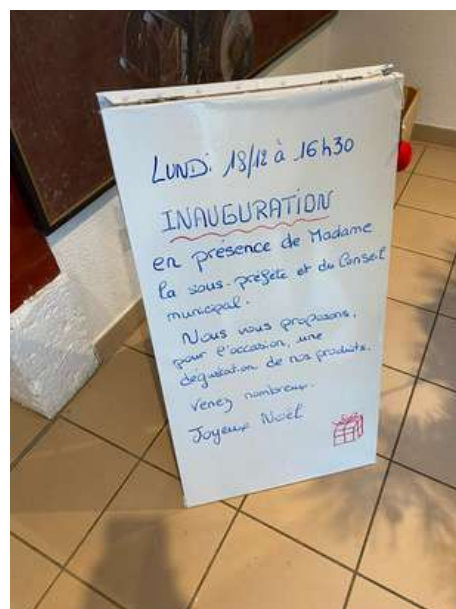 LUNDI 18/12 à 16h30
INAUGURATION
en présence de Madame
la sous-préfète et du Conseil
municipal.
Nous vous proposons,
pour l'occasion, une
dégustation de nos produits.
Venez nombreux.
Joyeux Noël